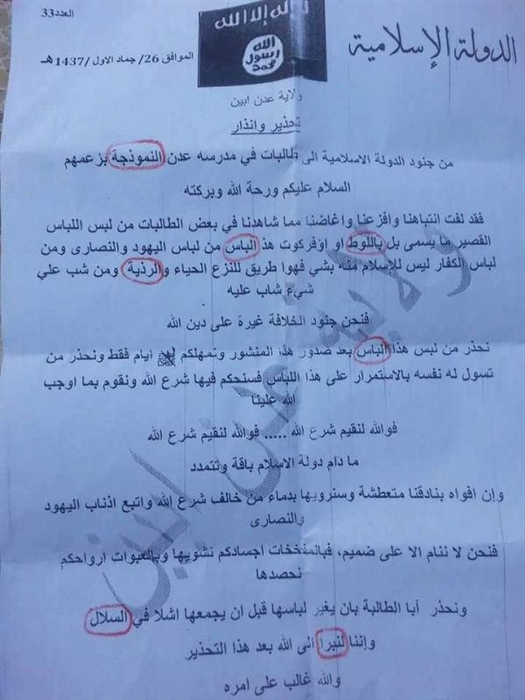 العدد33
لا إله إلا الله
الله
رسول
محمد
الدولة الإسلامية
الموافق 26/ جماد الاول /1437هـ
ولاية عدن ابين
تحذير وانذار
من جنود الدولة الاسلامية الى طالبات في مدرسه عدن النموذجة بزعمهم
السلام عليكم ورحة الله وبركته
فقد لفت انتباهنا وافزعنا واغاضنا مما شاهدنا في بعض الطالبات من لبس اللباس
القصير ما يسمى بل باللوط او اوفركوت هذ الباس من لباس اليهود والنصارى ومن
لباس الكفار ليس للإسلام منه بشي فهوا طريق للنزع الحياء والرذية ومن شب علي
شيء شاب عليه
فنحن جنود الخلافة غيرة على دين الله
نحذر من لبس هذا الباس بعد صدور هذا المنشور ونمهلكم ايام فقط ونحذر من
تسول له نفسه بالاستمرار على هذا اللباس فسنحكم فيها شرع الله ونقوم بما اوجب
الله علينا
فوالله لنقيم شرع الله ..... فوالله لنقيم شرع الله
ما دام دولة الاسلام باقة وتتمدد
وإن افواه بنادقنا متعطشة وسنرويها بدماء من خالف شرع الله واتبع اذناب اليهود
والنصارى
فنحن لا ننام الا على ضميم، فبالمفخخات اجسادكم نشويها وبالعبوات ارواحكم
نحصدها
ونحذر أبا الطالبة بان يغير لباسها قبل ان يجمعها اشلا في السلال
وإننا لنبرا الى الله بعد هذا التحذير
والله غالب على امره
ولاية عدن ابين